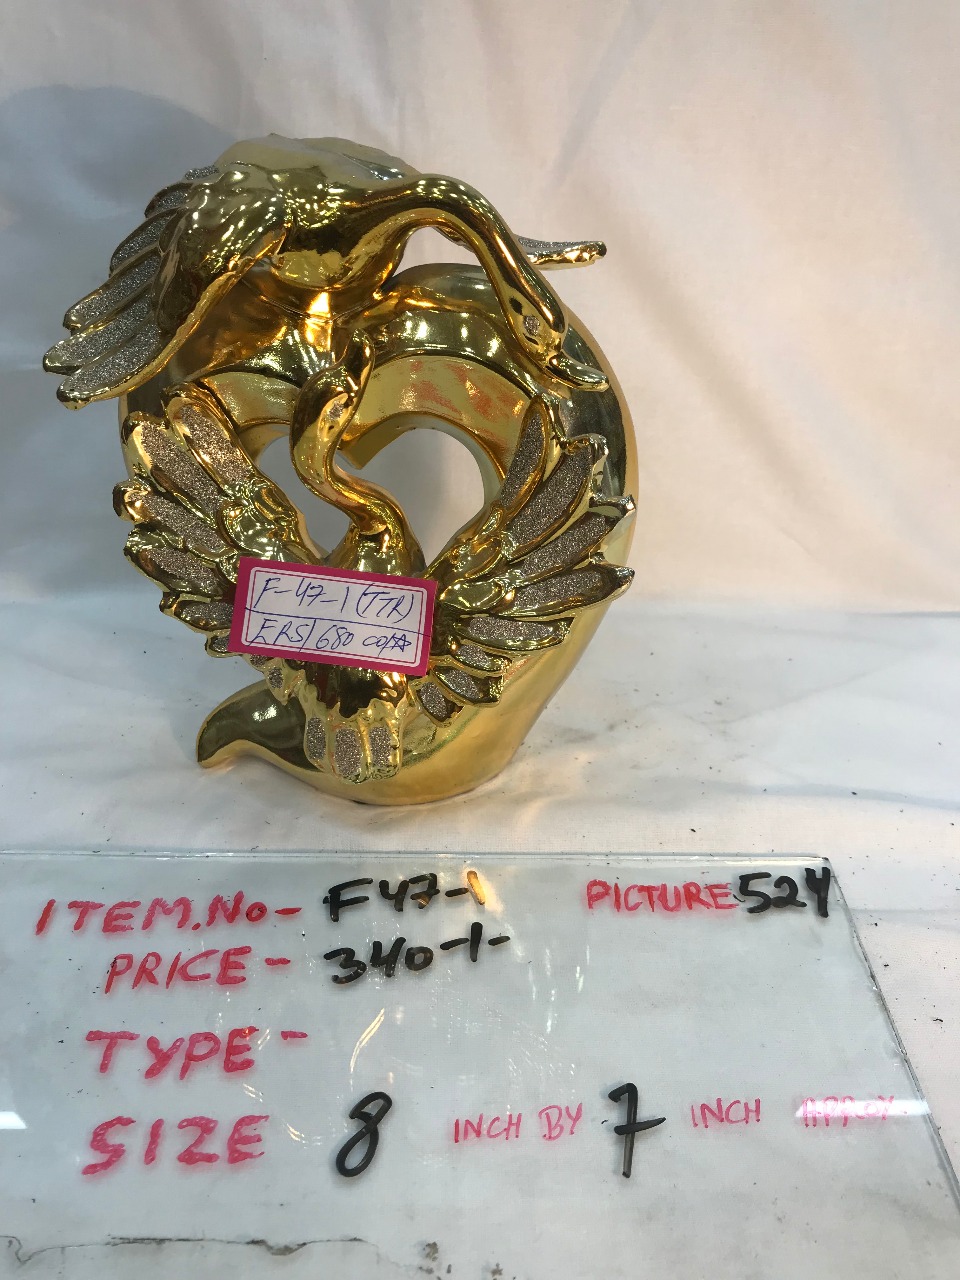 F-47-1 (TTR)
ERS/ 680
ITEM.No- F47-1 PICTURE 524
PRICE- 340-1-
TYPE-
SIZE 8 INCH BY 7 INCH APPROX